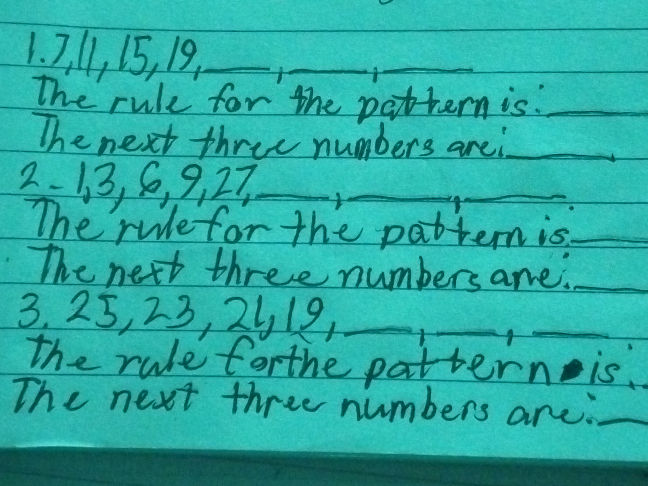 1. 7, 11, 15, 19, ___, ___, ___
The rule for the pattern is: ___
The next three numbers are: ___.
2- 1, 3, 6, 9, 27, ___, ___, ___.
The rule for the pattern is: ___
The next three numbers are: ___
3. 25, 23, 21, 19, ___, ___, ___
The rule for the pattern is:
The next three numbers are: ___